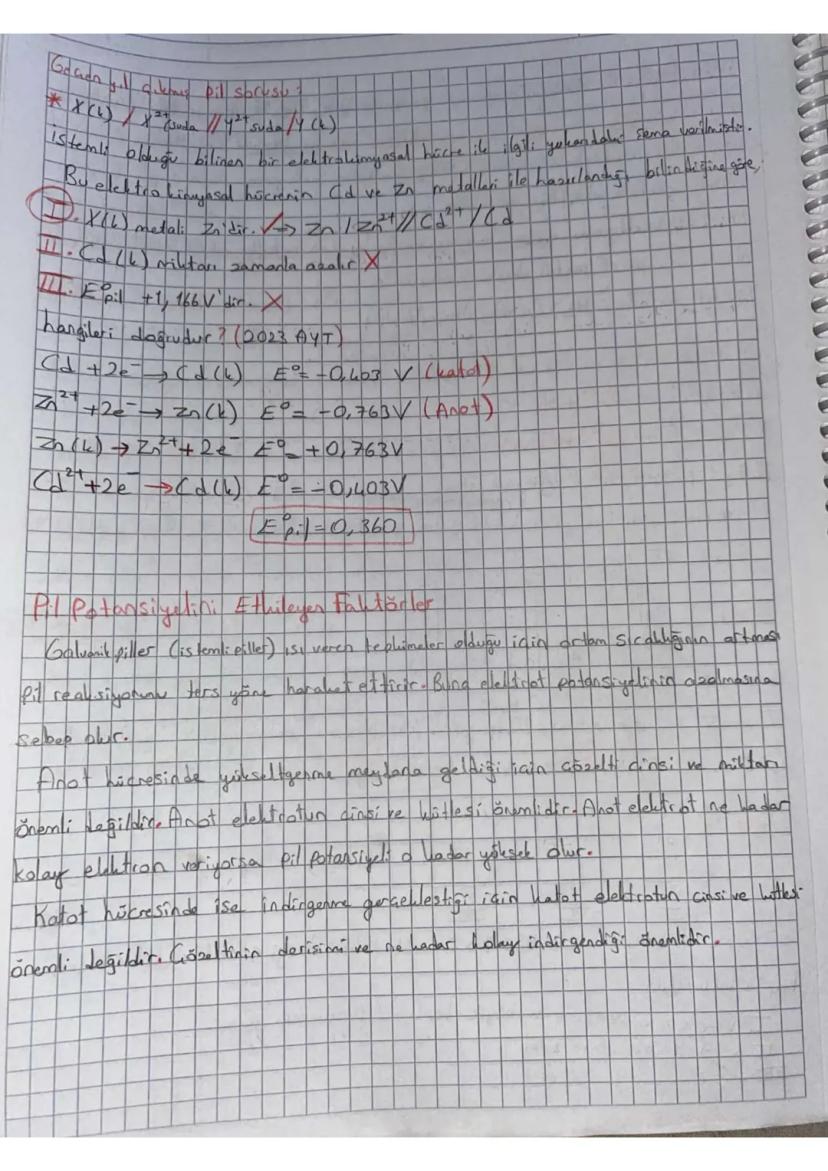 Geçen yıl çıkmış pil sorusu:
* X(k) / X²⁺suda // Y²⁺suda / Y(k)
istemli olduğu bilinen bir elektrokimyasal hücre ile ilgili yukarıdaki şema verilmiştir.
Bu elektrokimyasal hücrenin Cd ve Zn metalleri ile hazırlandığı bilindiğine göre,
I. X(k) metali Zn'dir. ✓→ Zn / Zn²⁺ // Cd²⁺ / Cd
II. Cd(k) miktarı zamanla azalır X
III. E°pil +1,166 V'dir. X
hangileri doğrudur? (2023 AYT)
Cd + 2e⁻ → Cd(k) E° = -0,403 V (Katot)
Zn²⁺ + 2e⁻ → Zn(k) E° = -0,763V (Anot)
Zn(k) → Zn²⁺ + 2e⁻ E° = +0,763V
Cd²⁺ + 2e⁻ → Cd(k) E° = -0,403V
E°pil = 0,360
Pil Potansiyelini Etkileyen Faktörler
Galvanik piller (istemli piller) ısı veren tepkimeler olduğu için ortam sıcaklığının artması
pil reaksiyonunu ters yöne hareket ettirir. Buna elektrot potansiyelinin azalmasına
sebep olur.
Anot hücresinde yükseltgenme meydana geldiği için çözelti cinsi ve miktarı
önemli değildir. Anot elektrotun cinsi ve kütlesi önemlidir. Anot elektrot ne kadar
kolay elektron veriyorsa pil potansiyeli o kadar yüksek olur.
Katot hücresinde ise indirgenme gerçekleştiği için katot elektrotun cinsi ve kütlesi
önemli değildir. Çözeltinin derişimi ve ne kadar kolay indirgendiği önemlidir.